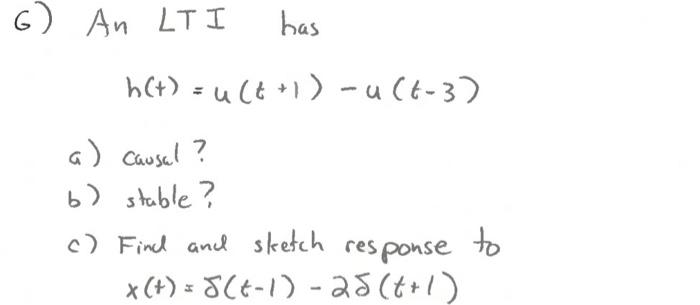 6) An LTI has
h(t) = u(t+1) - u(t-3)
a) causal?
b) stable?
c) Find and sketch response to
x(t) = δ(t-1) - 2δ(t+1)